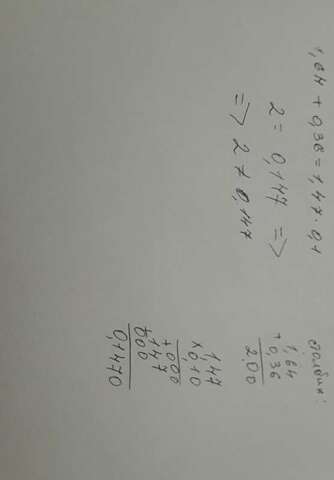 1,64 + 0,36 = 1,47 · 0,1
2 = 0,147 =>
=> 2 ≠ 0,147
столбик:
1,64
+ 0,36
2,00
1,47
× 0,10
+ 000
147
000
0,1470